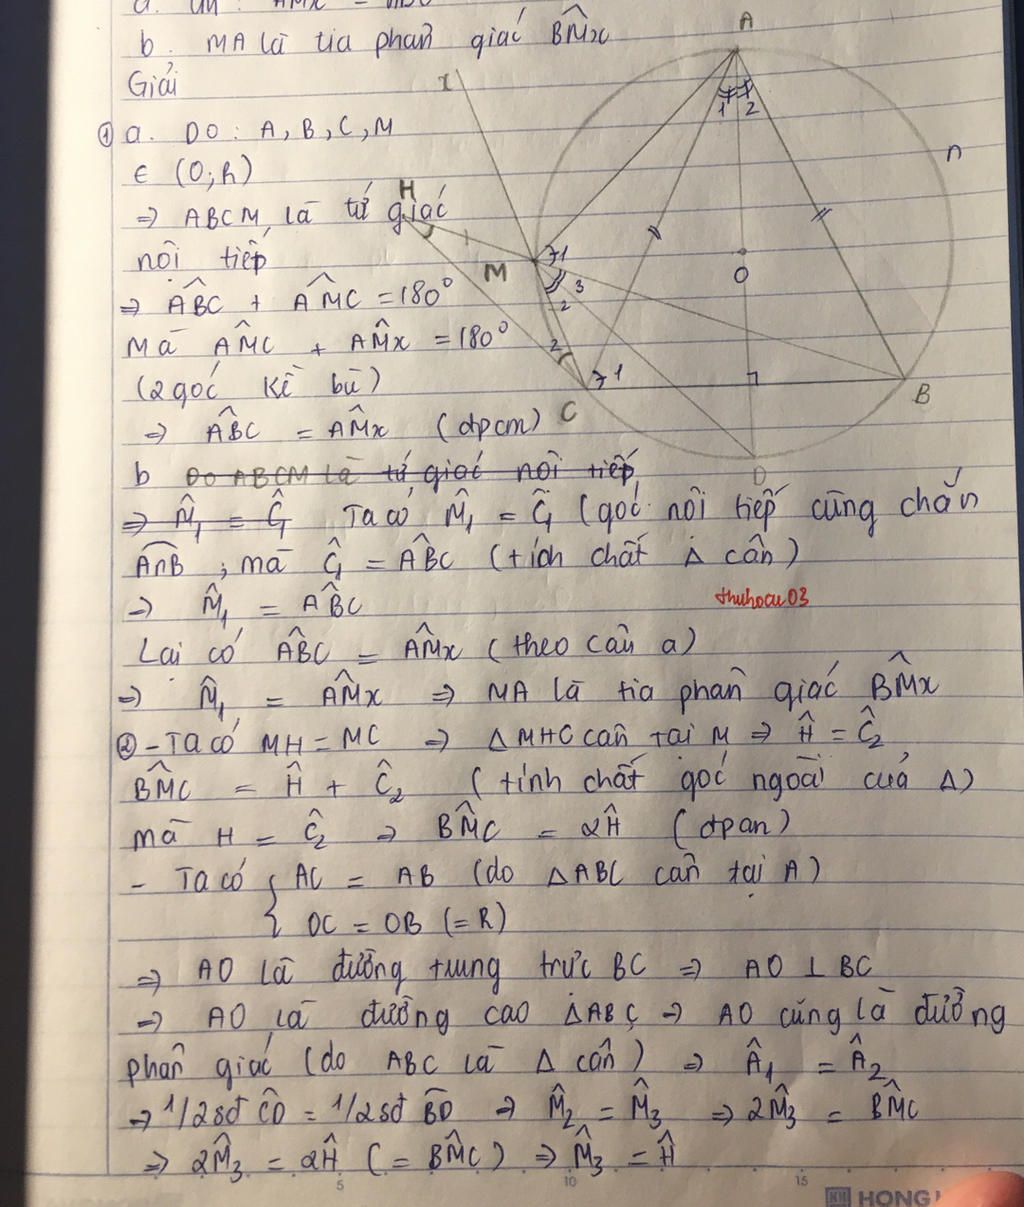 b. MA là tia phân giác BM̂x
Giải
① a. Do: A, B, C, M
∈ (O;R)
=> ABCM là tứ giác
nội tiếp
=> AB̂C + AM̂C = 180°
Mà AM̂C + AM̂x = 180°
(2 góc kề bù)
=> AB̂C = AM̂x (đpcm)
b Do ABCM là tứ giác nội tiếp
=> M̂₁ = Ĉ₁ Ta có M̂₁ = Ĉ₁ (góc nội tiếp cùng chắn
AnB ; mà Ĉ₁ = AB̂C (tích chất Δ cân)
=> M̂₁ = AB̂C
thuhoai03
Lại có AB̂C = AM̂x (theo câu a)
=> M̂₁ = AM̂x => MA là tia phân giác BM̂x
② - Ta có MH = MC => ΔMHC cân tại M => Ĥ = Ĉ₂
BM̂C = Ĥ + Ĉ₂ (tính chất góc ngoài của Δ)
mà H = Ĉ₂ => BM̂C = 2Ĥ (đpcm)
- Ta có { AC = AB (do ΔABC cân tại A)
OC = OB (=R)
=> AO là đường trung trực BC => AO ⊥ BC
=> AO là đường cao ΔABC => AO cũng là đường
phân giác (do ABC là Δ cân) => Â₁ = Â₂
=> 1/2 sđ CD = 1/2 sđ BD => M̂₂ = M̂₃ => 2M̂₃ = BM̂C
=> 2M̂₃ = 2Ĥ (= BM̂C) => M̂₃ = Ĥ
A
1 2
x
n
H
M
1
3
2
O
2
1
C
B
D
5 10 15
HONG